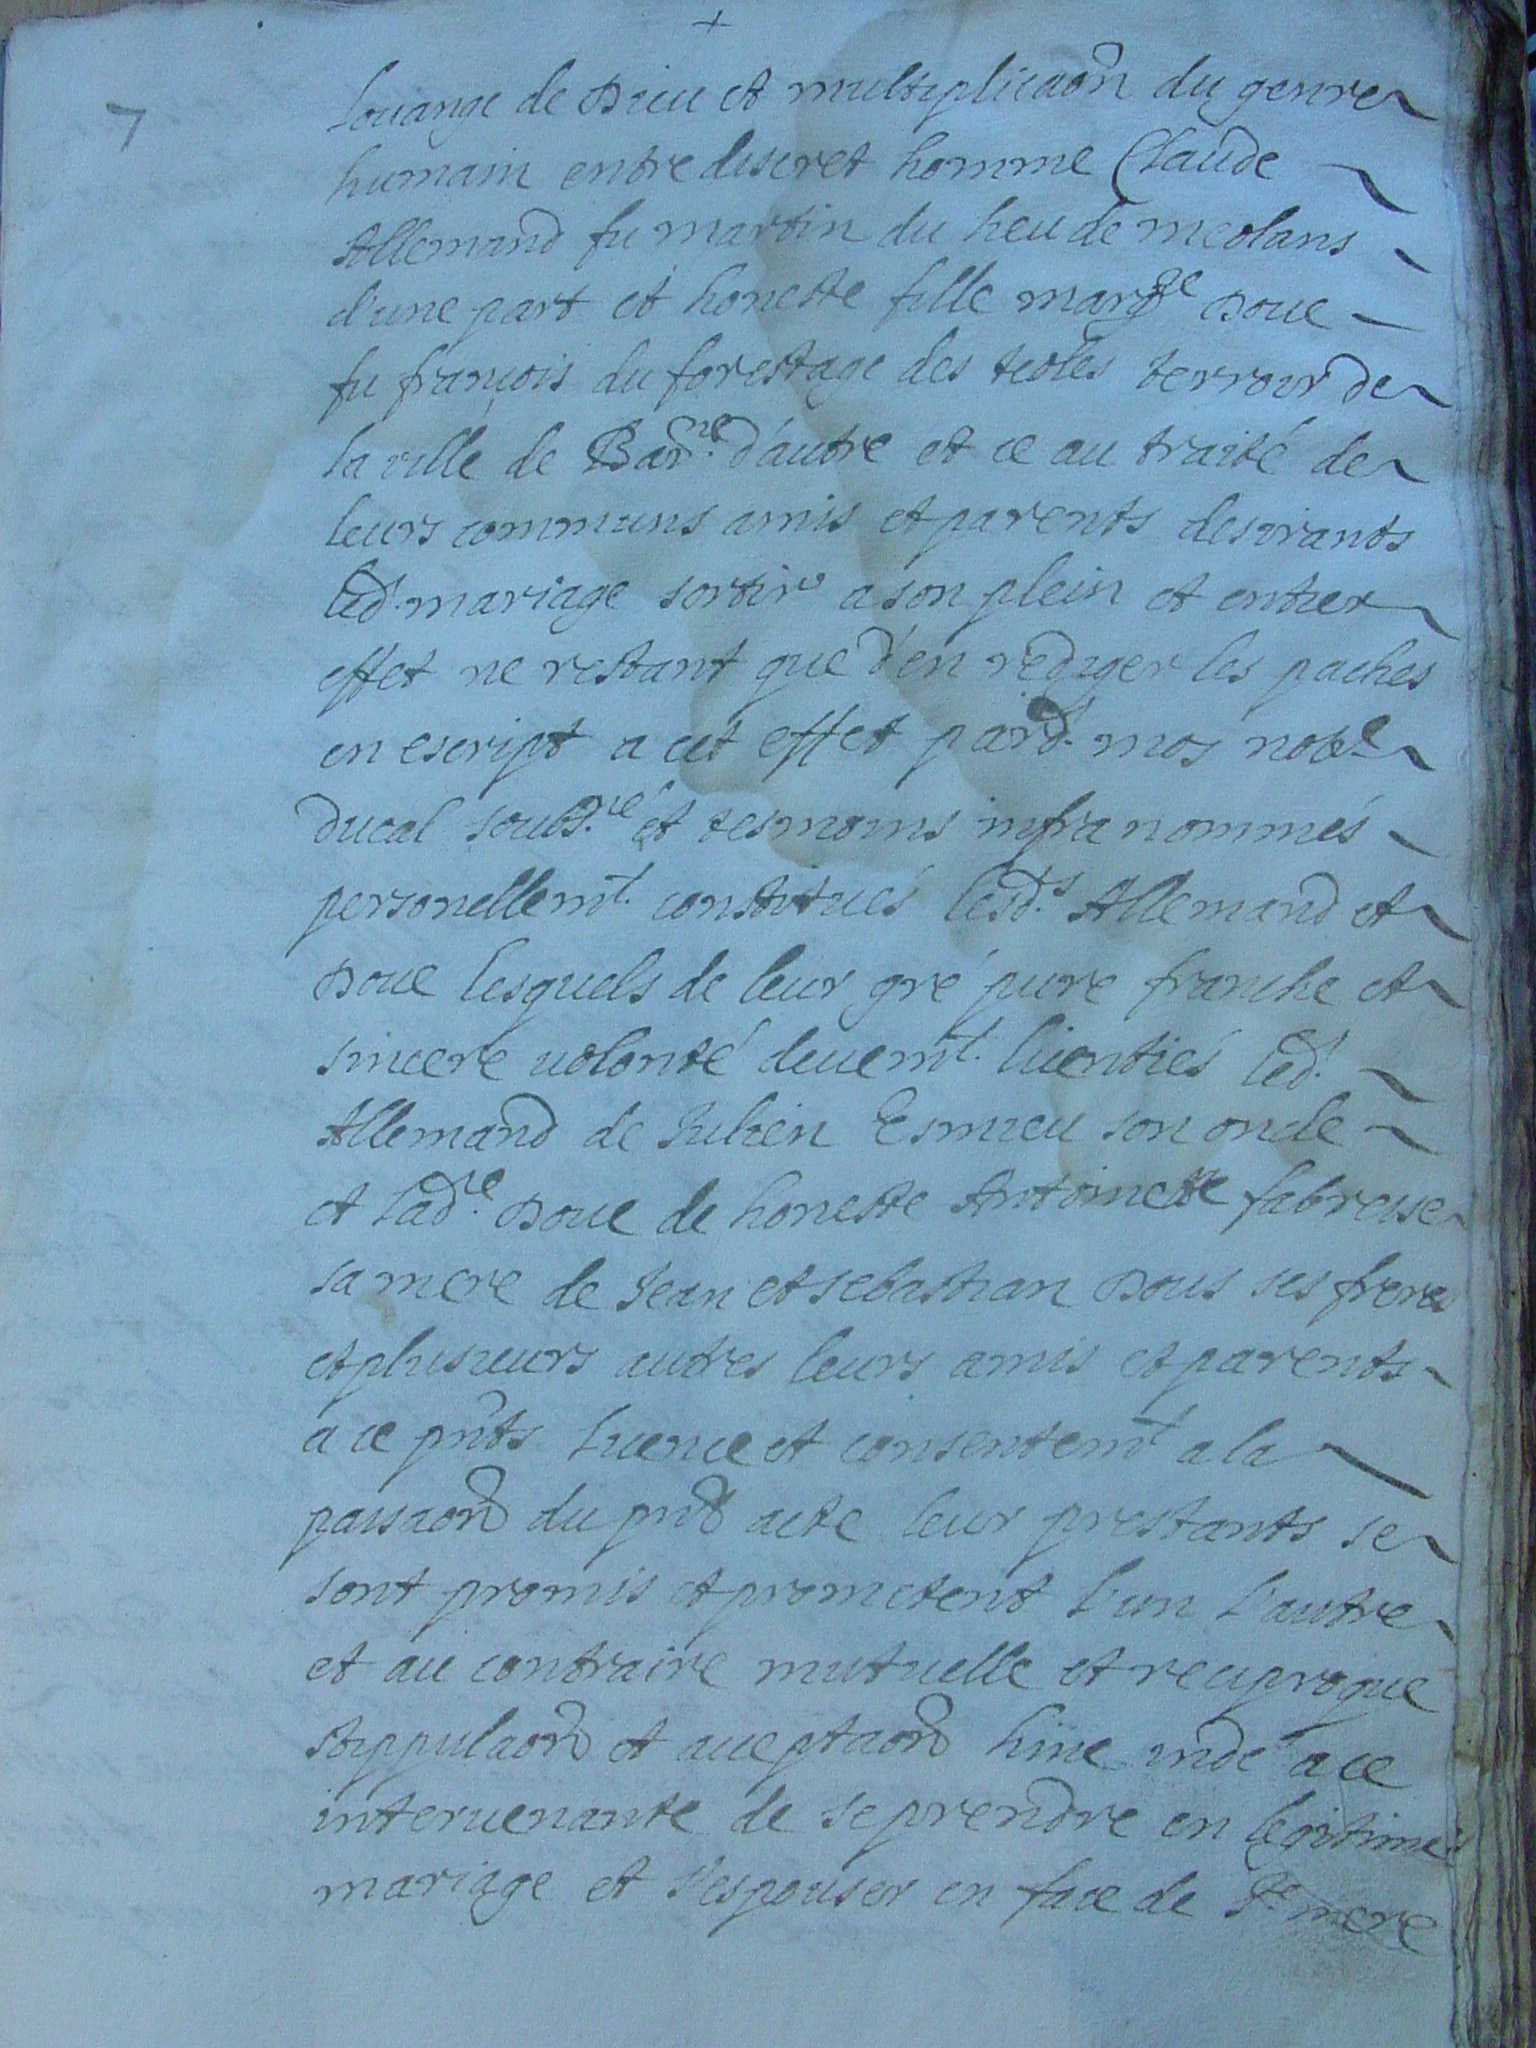 +
7
louange de Dieu et multiplicaon du genre
humain entre discret homme Claude
Allemand fu martin du lieu de meolans
d'une part et honeste fille margte Doue
fu françois du forestage des teoles terroir de
la ville de Barne d'autre et ce au traité de
leurs communs amis et parents desirants
led. mariage sortir a son plein et entier
effet ne restant que d'en rediger les paches
en escript a cet effet pard. mos notre
ducal soubs.né et tesmoins infra nommés
personellemt. constitués lesds. Allemand et
Doue lesquels de leur gré pure franche et
sincere volonté deuemt. licentiés led.
Allemand de Julien Esmieu son oncle
et lad.te Doue de honeste Antoinette fabresse
sa mere de Jean et sebastian Dous ses freres
et plusieurs autres leurs amis et parents
a ce pnts licence et consentemt a la
passaon du pnt acte leur prestants se
sont promis et prometent l'un l'autre
et au contraire mutuelle et reciproque
stippulaon et acceptaon hinc inde a ce
intervenante de se prendre en legitime
mariage et s'espouser en face de Ste mere